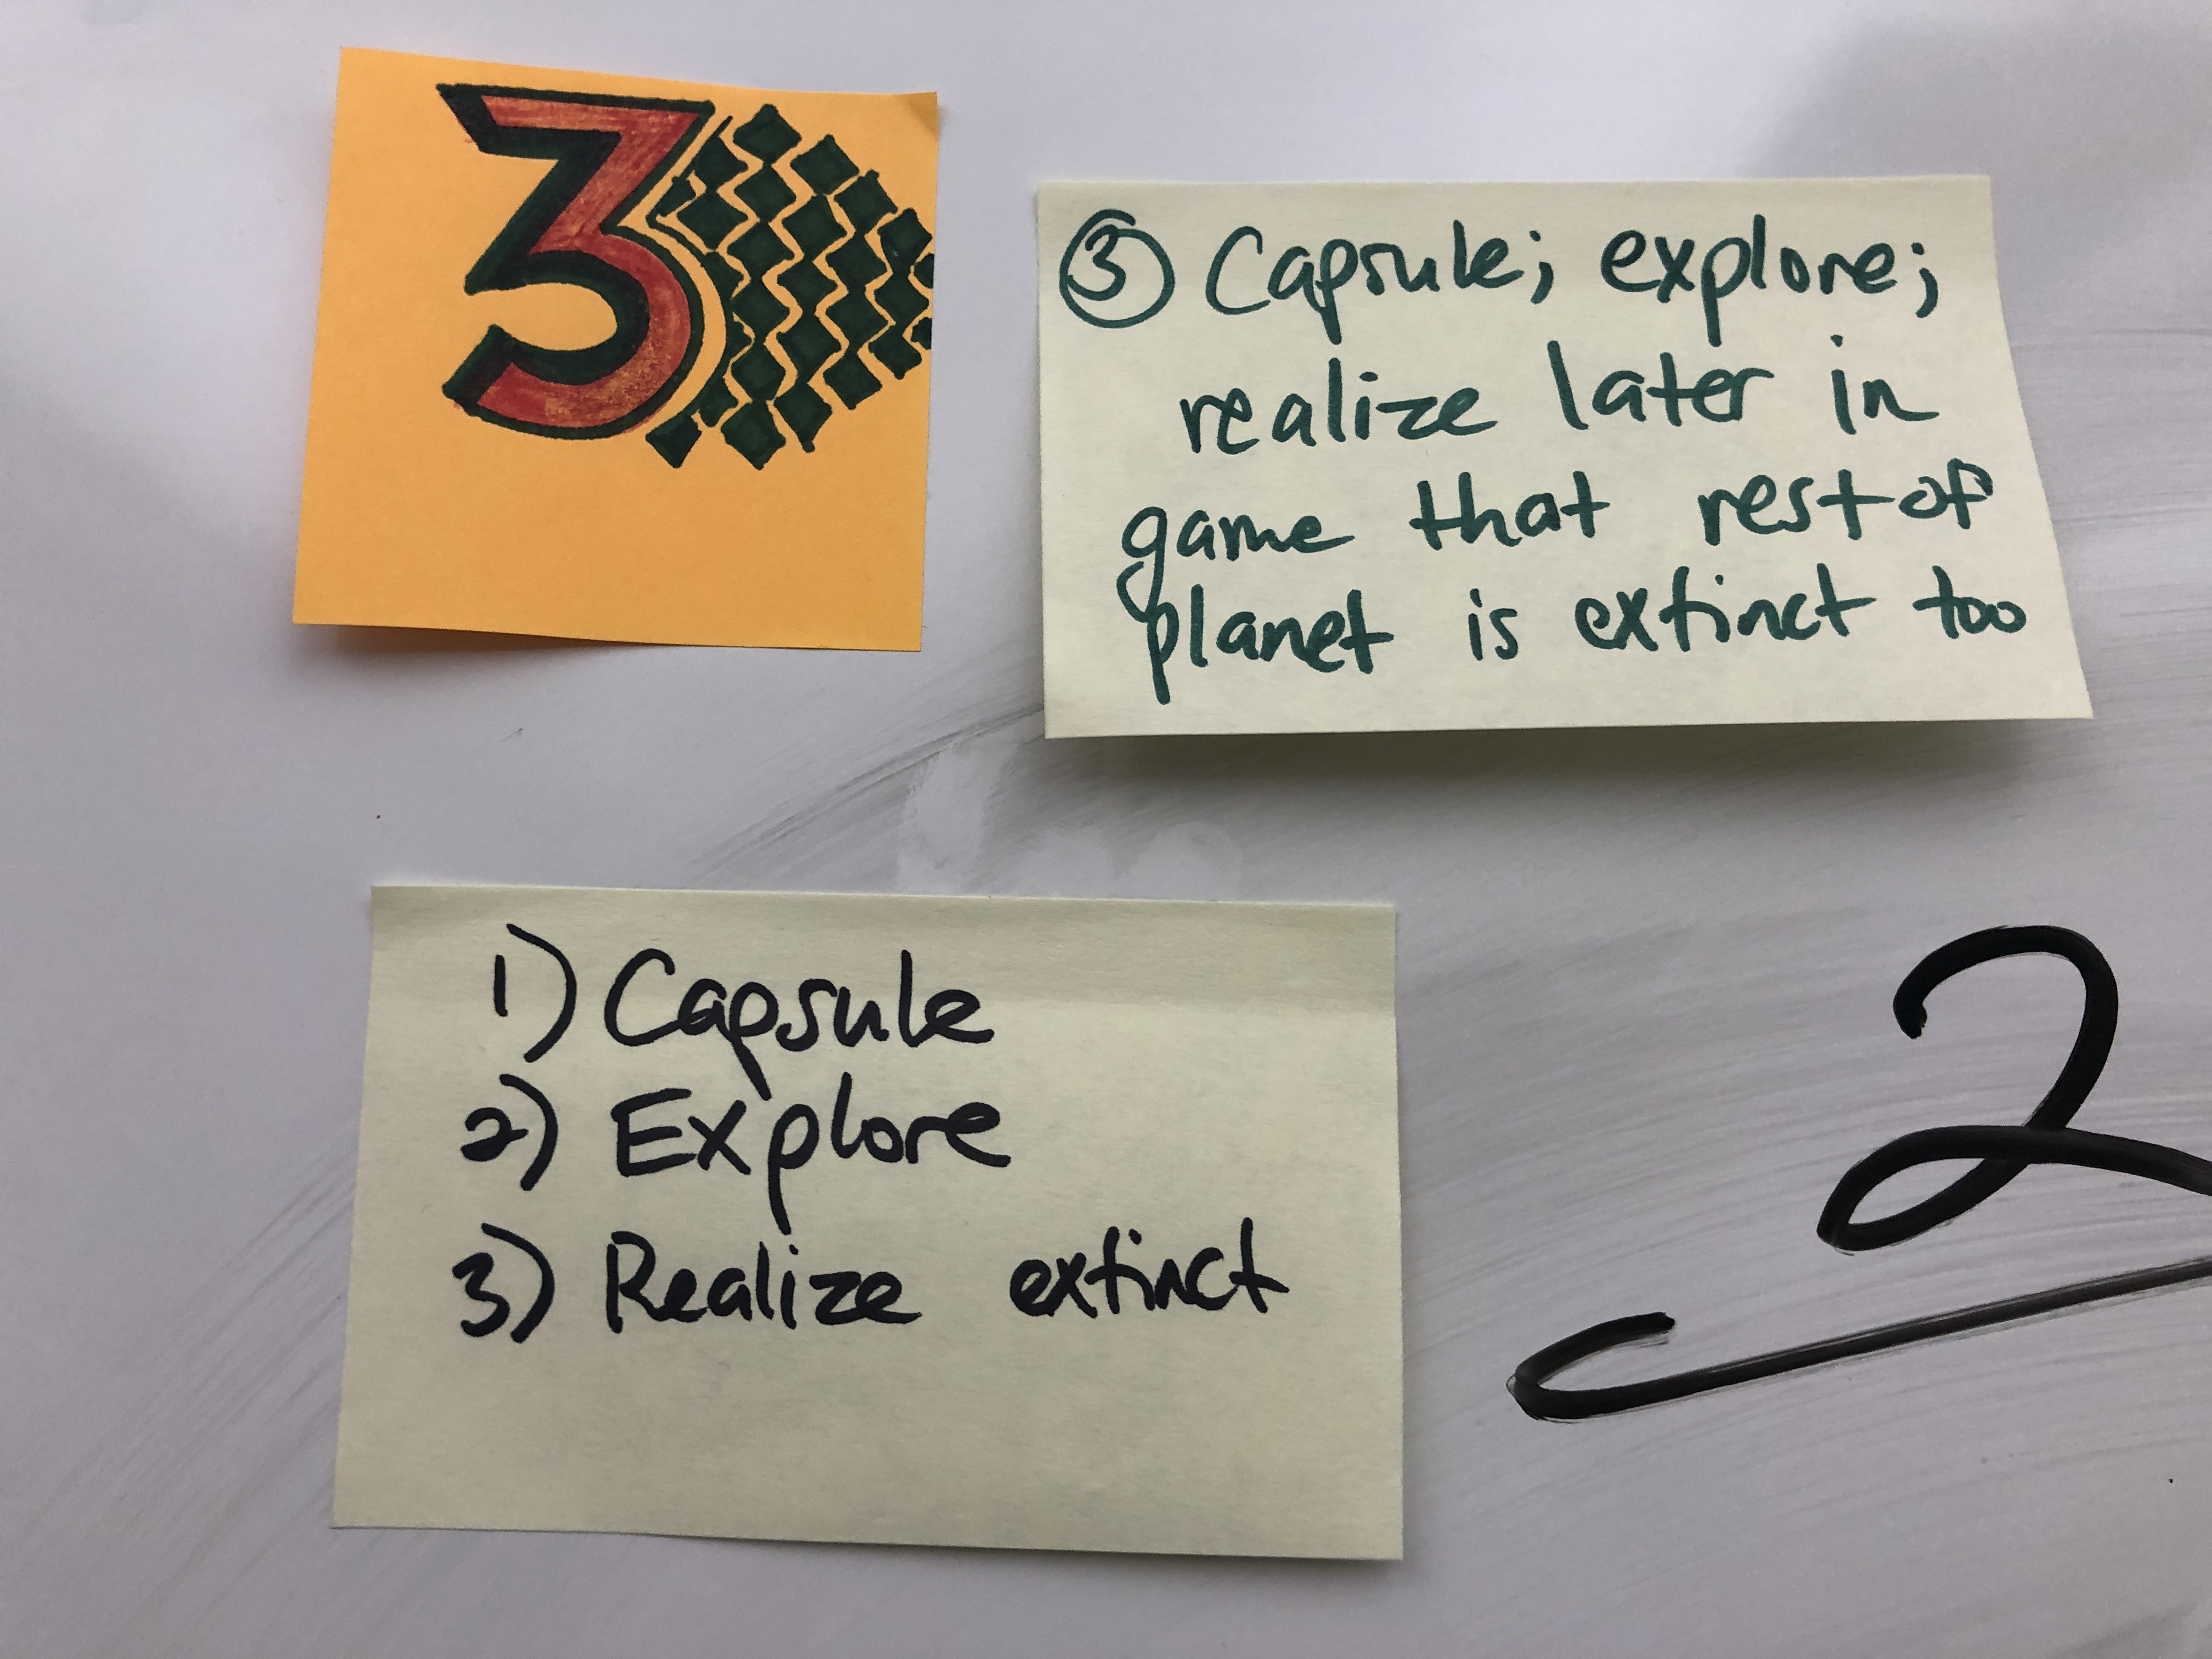 3
③ Capsule; explore;
realize later in
game that rest of
planet is extinct too
1) Capsule
2) Explore
3) Realize extinct
2